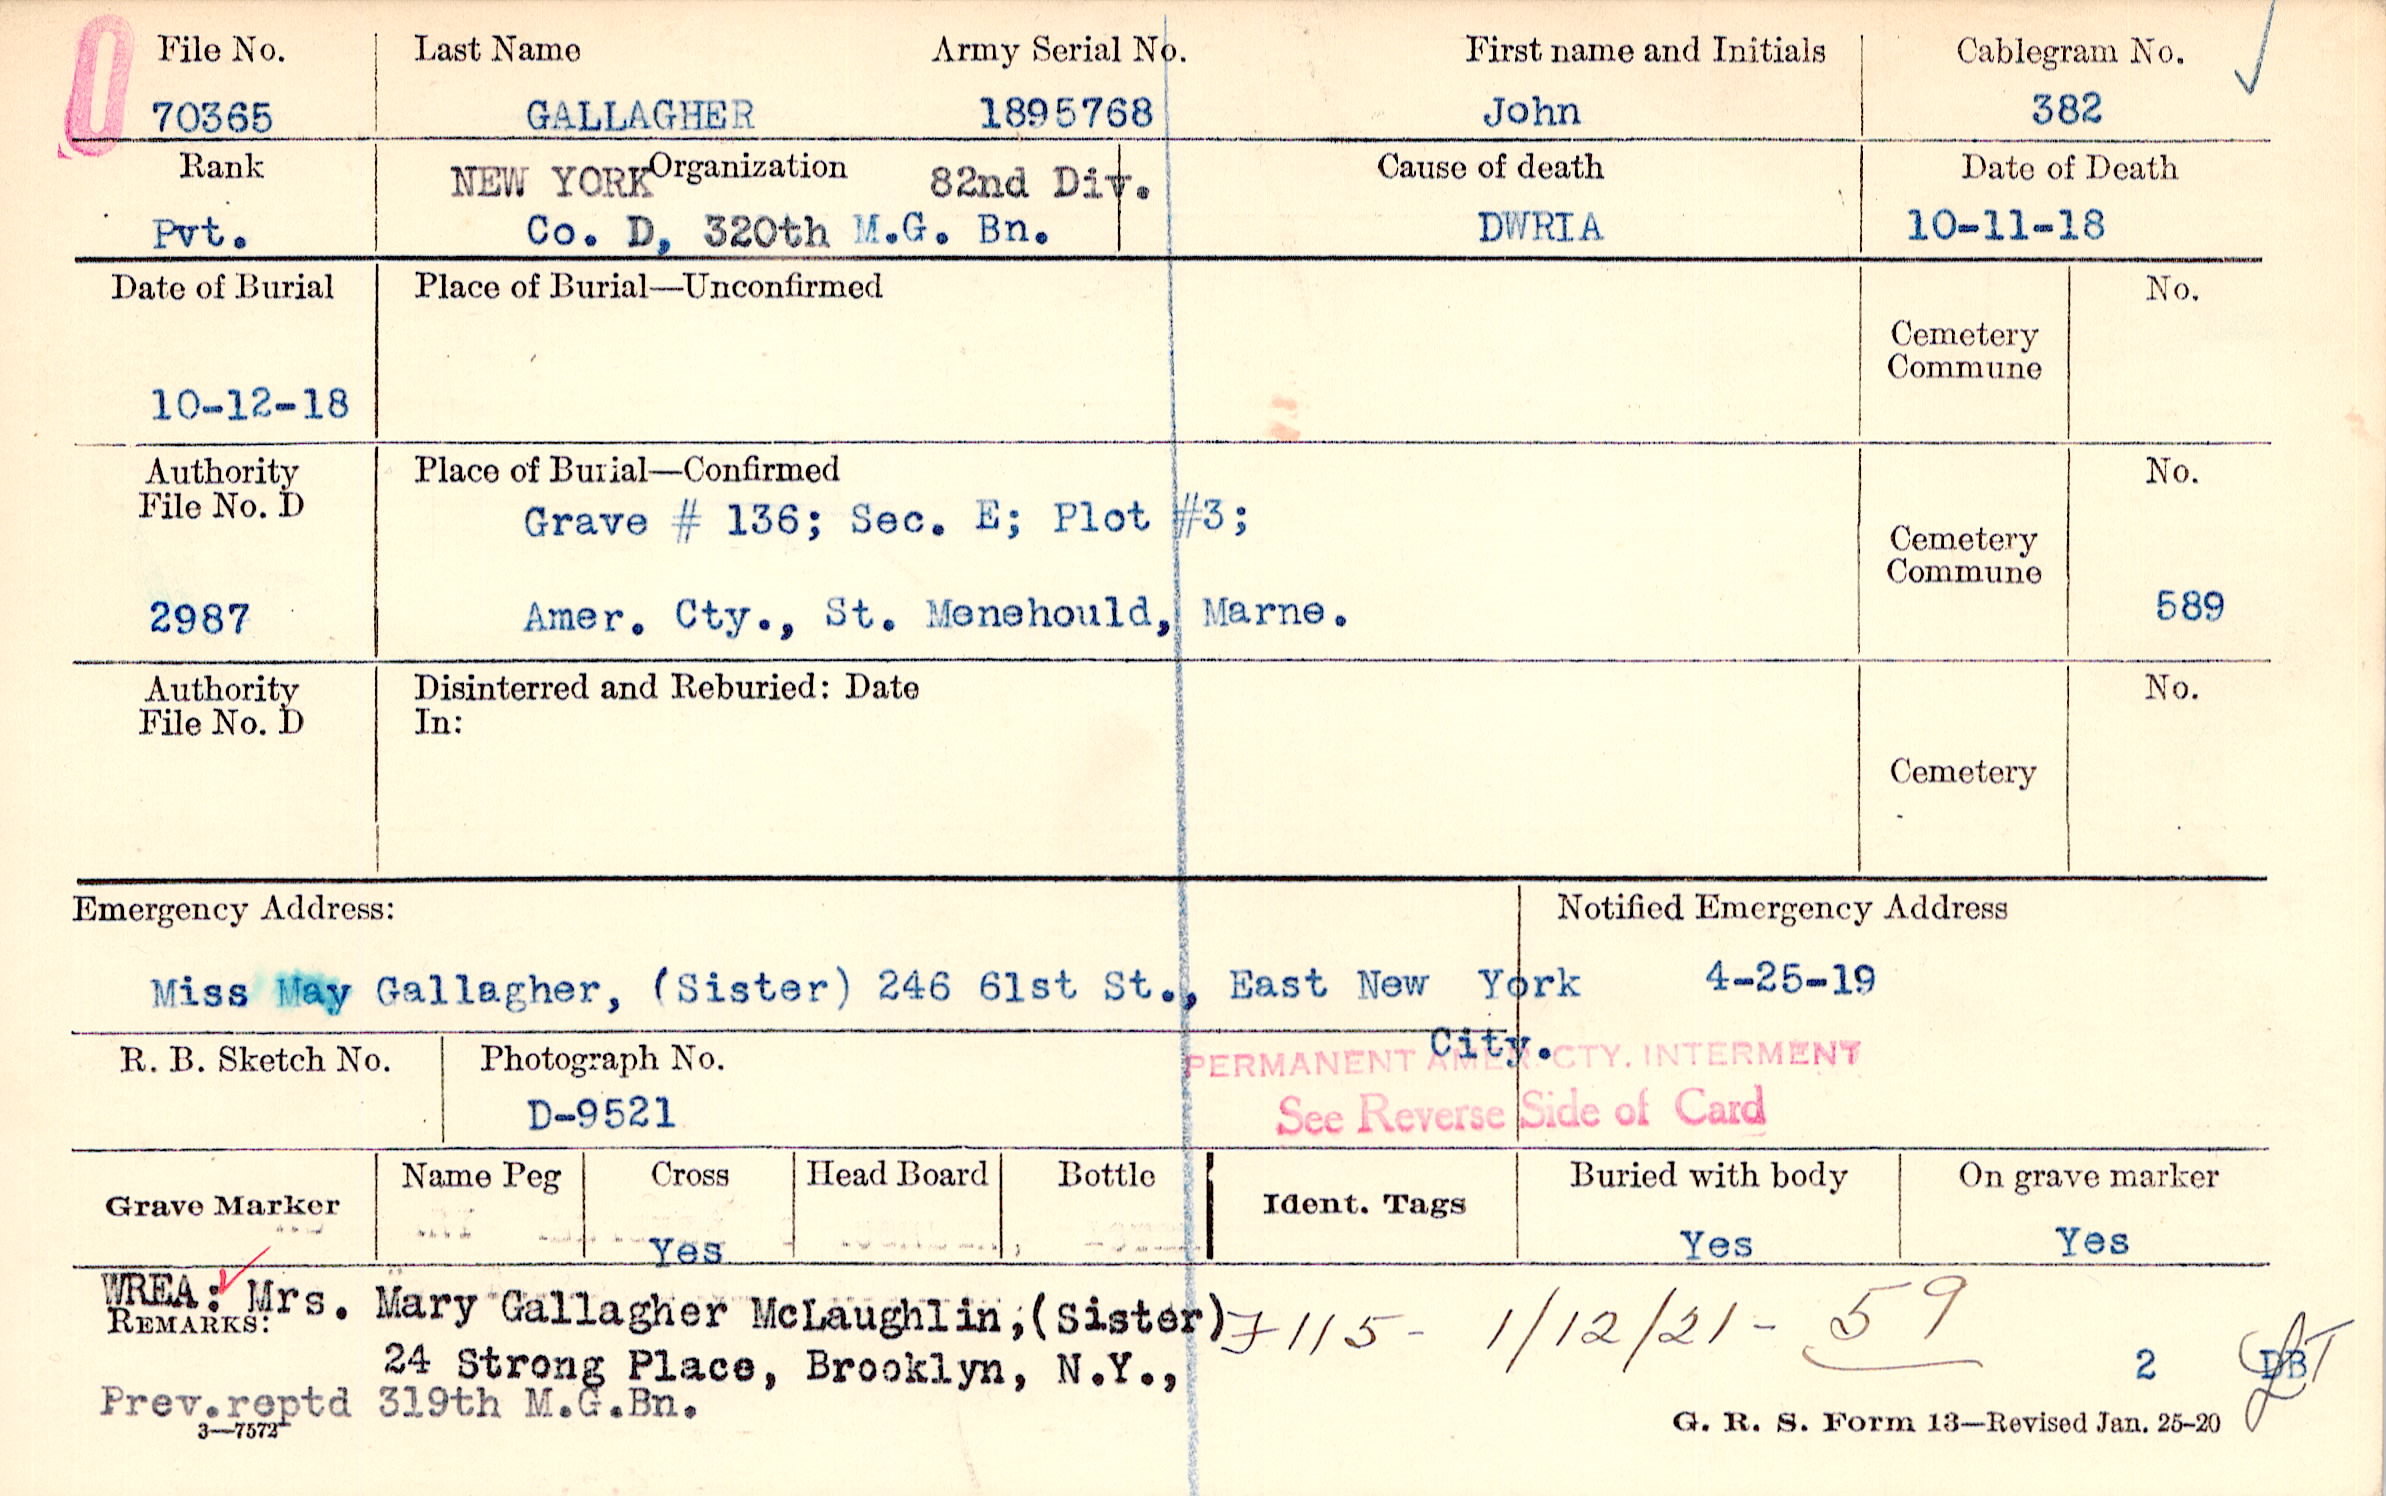 File No. Last Name Army Serial No. First name and Initials Cablegram No.
70365 GALLAGHER 1895768 John 382
Rank Organization Cause of death Date of Death
NEW YORK 82nd Div.
Pvt. Co. D, 320th M.G. Bn. DWRIA 10-11-18
Date of Burial Place of Burial—Unconfirmed No.
Cemetery
Commune
10-12-18
Authority Place of Burial—Confirmed No.
File No. D
Grave # 136; Sec. E; Plot #3;
Cemetery
Commune
2987 Amer. Cty., St. Menehould, Marne. 589
Authority Disinterred and Reburied: Date No.
File No. D In:
Cemetery
Emergency Address: Notified Emergency Address
Miss May Gallagher, (Sister) 246 61st St., East New York 4-25-19
City.
R. B. Sketch No. Photograph No. PERMANENT AMER. CTY. INTERMENT
D-9521 See Reverse Side of Card
Grave Marker Name Peg Cross Head Board Bottle Ident. Tags Buried with body On grave marker
Yes Yes Yes
WREA: Mrs. Mary Gallagher McLaughlin,(Sister) 115- 1/12/21- 59
REMARKS:
24 Strong Place, Brooklyn, N.Y., 2 DB
Prev.reptd 319th M.G.Bn.
3—7572 G. R. S. Form 13—Revised Jan. 25-20